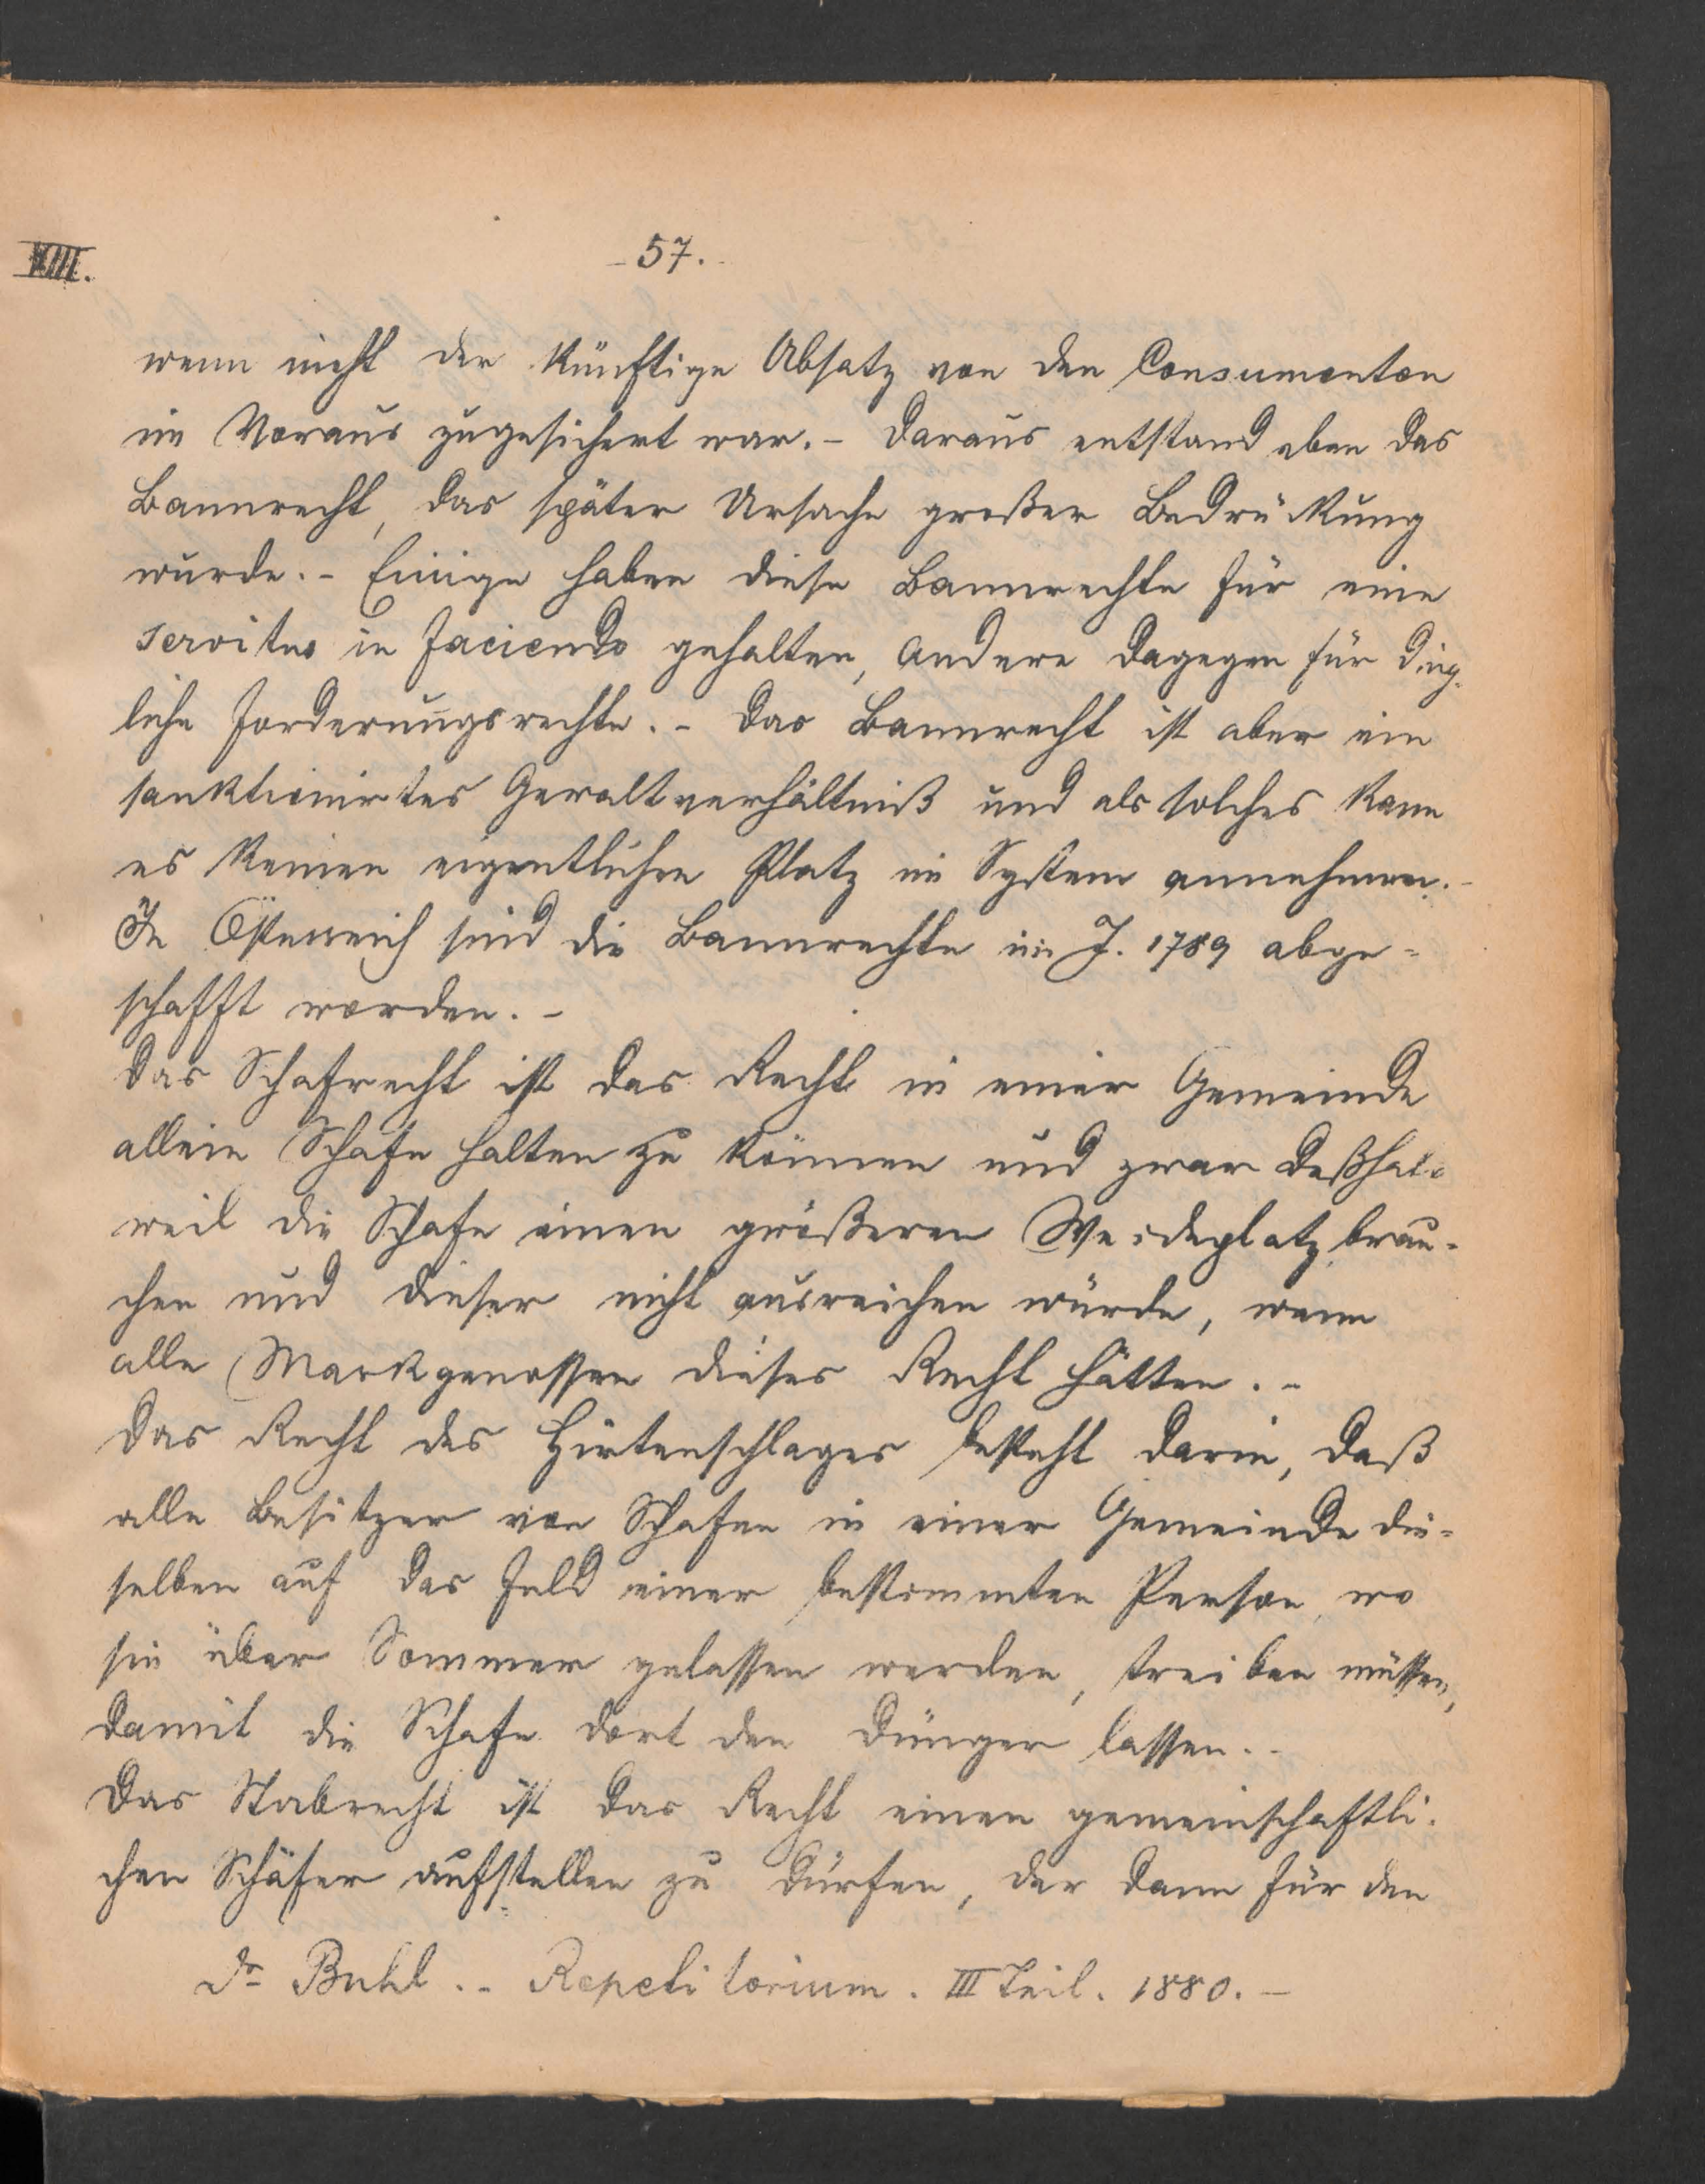 XIII.
- 57. -
wenn nicht der künftige Absatz von den Consumenten
im Voraus zugesichert war. - Daraus entstand eben das
Bannrecht, das später Ursache großer Bedrückung
wurde. - Einige haben diese Bannrechte für eine
servitus in faciendo gehalten, Andere dagegen für ding-
liche Forderungsrechte. - Das Bannrecht ist aber ein
sanktionirtes Gewaltverhältniß und als solches kann
es keinen eigentlichen Platz im System annehmen. -
In Österreich sind die Bannrechte im J. 1789 abge-
schafft worden. -
Das Schafrecht ist das Recht in einer Gemeinde
allein Schafe halten zu können und zwar deßhalb
weil die Schafe einen größeren Weideplatz brau-
chen und dieser nicht ausreichen würde, wenn
alle Markgenossen dieses Recht hätten. -
Das Recht des Hirtenschlages besteht darin, daß
alle Besitzer von Schafen in einer Gemeinde die-
selben auf das Feld einer bestimmten Person, wo
sie über Sommer gelassen werden, treiben müssen,
damit die Schafe dort den Dünger lassen. -
Das Stabrecht ist das Recht einen gemeinschaftli-
chen Schäfer aufstellen zu dürfen, der dann für den
Dr Buhl. - Repetitorium. III Teil. 1880. -